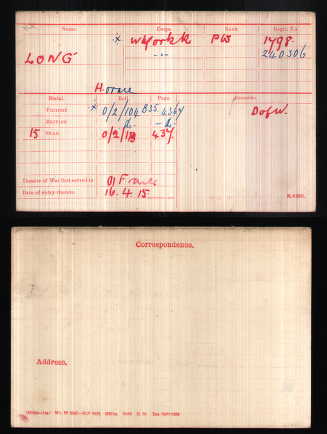 Name. Corps. Rank. Regtl. No.
x W York R Pte 1798
LONG - " - 240306
Horace
Medal. Roll. Page. Remarks.
Victory x O/2/104 B35 4364 D of W.
British do - do -
15 Star O/2/1B 437.
Theatre of War first served in (1) France
Date of entry therein 16.4.15 K.1380.
Correspondence.
Address.